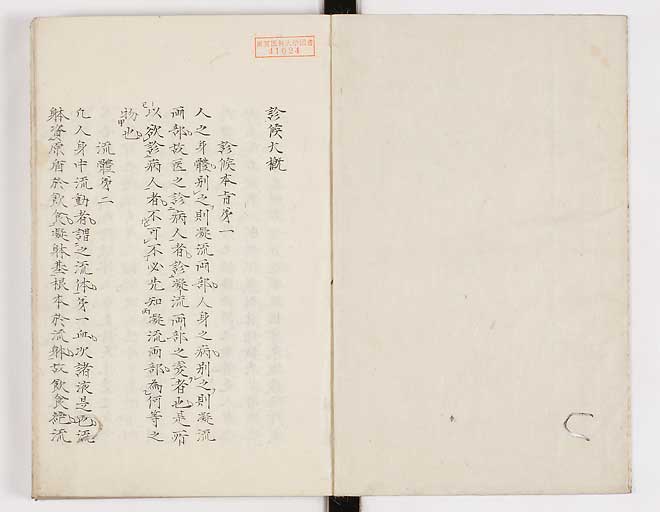 診候大概
診候本旨第一
人之身體別之則凝流両部人身之病別之則凝流
両部故医之診病人者診凝流両部之変者也是所
以欲診病人者不可不必先知凝流両部為何等之
物也
流體第二
凡人身中流動者謂之流体第一血次諸液是也流
躰資原有於飲食凝躰基根本於流躰故飲食純流
41024